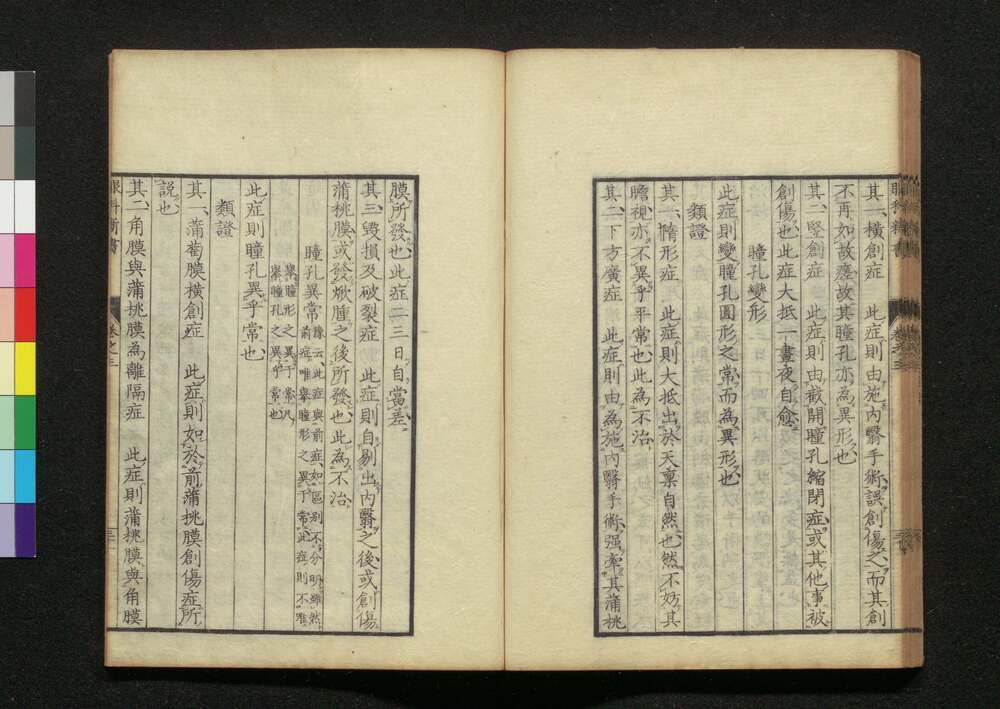 其一、橫創症　此症則由施內翳手術誤創傷之而其創
不再如故塵故其瞳孔亦為異形也
其二、竪創症　此症則由截開瞳孔縮閉症或其他事被
創傷也此症大抵一晝夜自愈
瞳孔變形
此症則變瞳孔圓形之常而為異形也
類證
其一、惰形症　此症則大抵出於天稟自然也然不妨其
瞻視亦不異乎平常也此為不治
其二、下方廣症　此症則由為施內翳手術强牽其蒲桃
膜所發也此症二三日自當差
其三、毀損及破裂症　此症則自剔出內翳之後或創傷
蒲桃膜或發焮腫之後所發也此為不治
瞳孔異常　豫云此症與前症如區别不分明雖然
前症唯擧瞳形之異于常此症則不唯
擧瞳形之異于常凡
擧瞳孔之異乎常也
此症則瞳孔異乎常也
類證
其一、蒲萄膜橫創症　此症則如於前蒲桃膜創傷症所
説也
其二、角膜與蒲桃膜為離隔症　此症則蒲桃膜與角膜
眼科新書
卷之三